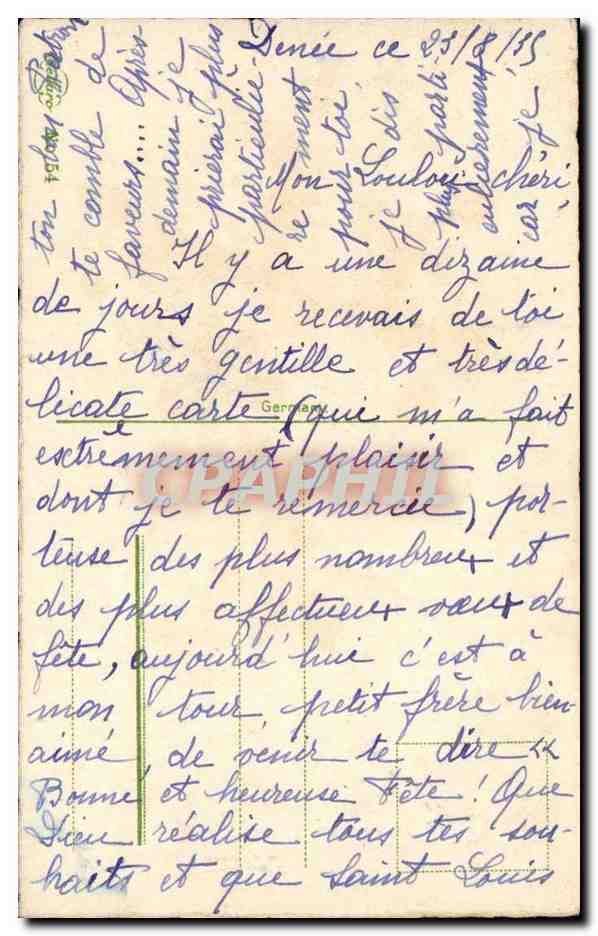 Denée ce 23/8/35
Mon Loulou chéri
Il y a une dizaine
de jours je recevais de toi
une très gentille et très dé-
licate carte (qui m'a fait
extrêmement plaisir et
dont je te remercie) por-
teuse des plus nombreux et
des plus affectueux vœux de
fête, aujourd'hui c'est à
mon tour, petit frère bien-
aimé, de venir te dire "
Bonne et heureuse Fête! Que
Dieu réalise tous tes sou-
haits et que Saint Louis
ton Patron
te comble de
faveurs... Après
demain je
prierai plus
particuliè-
re ment
pour toi
je dis
plus parti
culièrement
car je
Germany
CPAPHIL